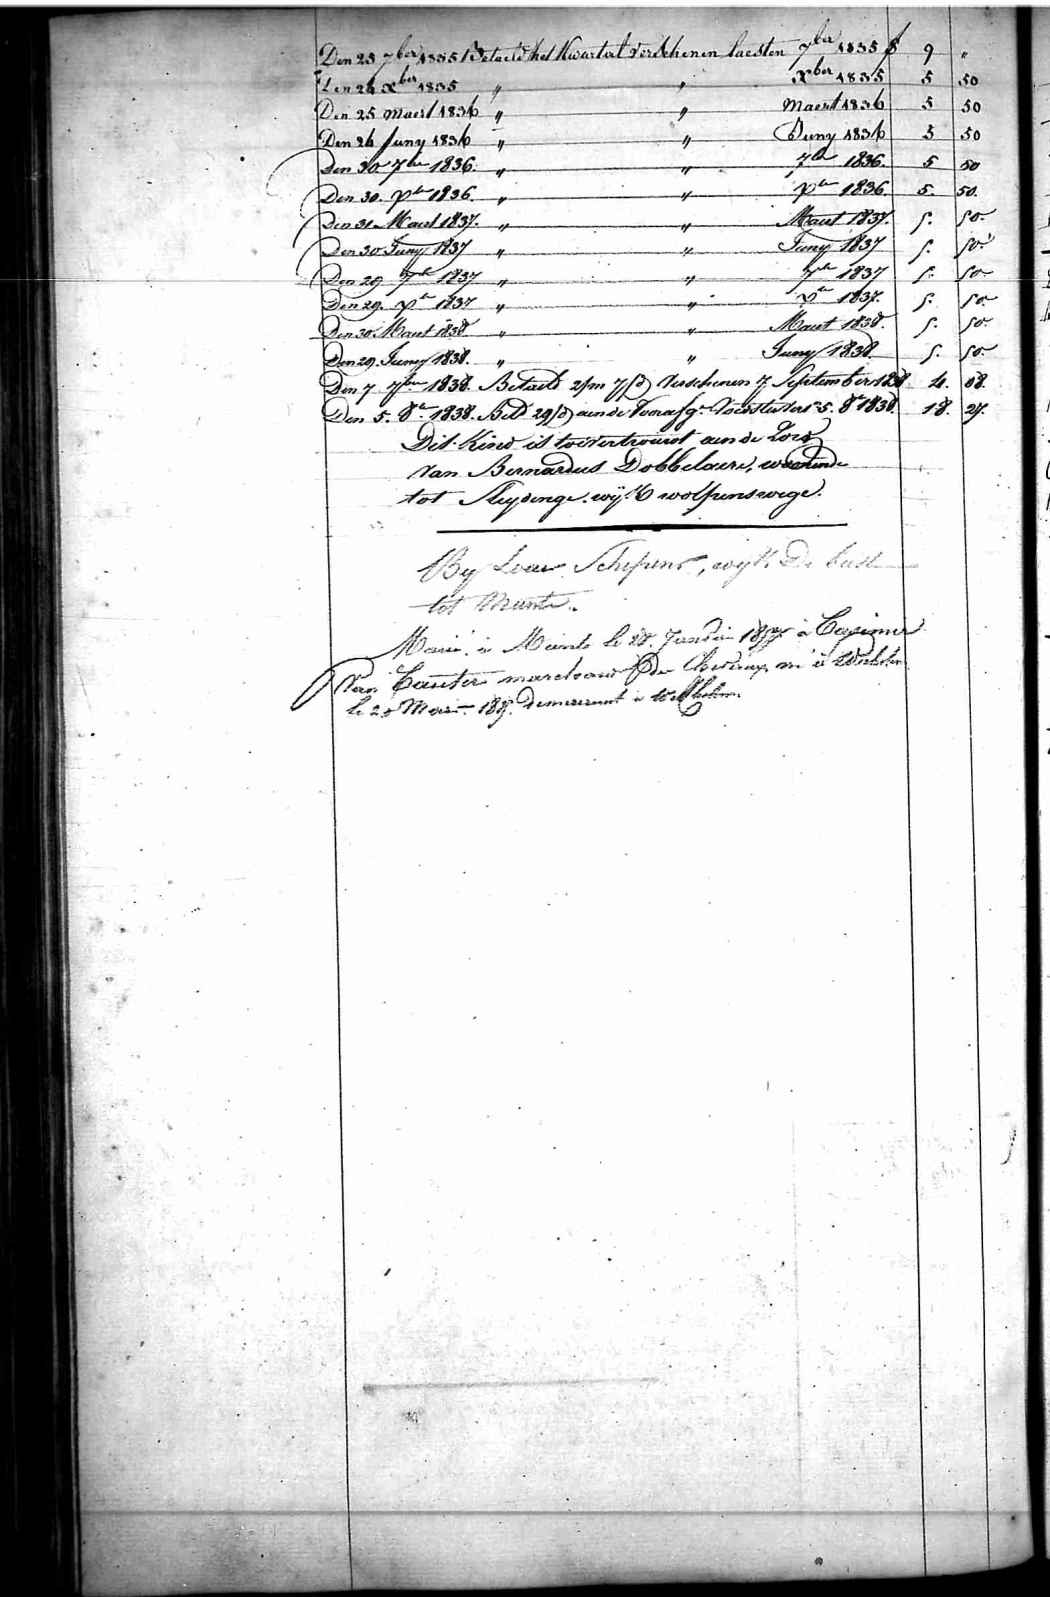 Den 23 7ber 1835 Betaeld het Kwartael verschenen laesten 7ber 1835 f 9 "
Den 24 Xber 1835 " " Xber 1835 5 50
Den 25 Maert 1836 " " Maert 1836 5 50
Den 26 Juny 1836 " " Juny 1836 5 50
Den 30 7bre 1836. " " 7bre 1836. 5 50
Den 30. Xbre 1836. " " Xbre 1836 5. 50.
Den 31 Maert 1837. " " Maert 1837. 5. 50.
Den 30 Juny 1837 " " Juny 1837 5. 50.
Den 29 7bre 1837 " " 7bre 1837 5. 50
Den 29. Xbre 1837 " " Xbre 1837. 5. 50.
Den 30 Maert 1838. " " Maert 1838. 5. 50.
Den 29. Juny 1838. " " Juny 1838. 5. 50.
Den 7 7bre 1838. Betaeld 2/m 7/d Verschenen 7 September 1838 4. 08.
Den 5. 8bre 1838. Betd 29/d aen de 5. 8bre 1838. 18. 27.
Dit Kind is toevertrouwt aen de Zorg
van Bernardus Dobbelaere, woonende
tot Sleydinge. wyk wolfpenswege.
By Schepens, wyk De
tot Munte.
Marié à Munte le 28. Janvier à Casimir
Van Cauter marchand de Chevaux, né à
le 20 Mars demeurant à